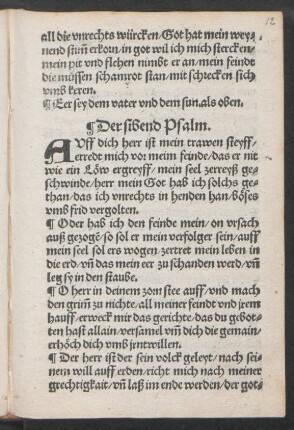 12
all die vnrechts würcken/Got hat mein weyz
nend stim̃ erkort/in got wil ich mich stercken/
mein pit vnd flehen nimbt er an/mein feindt
die müssen schamrot stan/mit schrecken sich
vmb keren.
¶ Eer sey dem vater vnd dem sun.als oben.
¶ Der sibend Psalm.
AVff dich herr ist mein trawen steyff/
erredt mich vor meim feinde/das er nit
wie ein Löw ergreyff/mein seel zerreyß ge-
schwinde/herr mein Got hab ich solchs ge-
than/das ich vnrechts in henden han/böses
vmb frid vergolten.
¶ Oder hab ich den feinde mein/on vrsach
auß gezogẽ/so sol er mein verfolger sein/auff
mein seel sol ers wogen/zertret mein leben in
die erd/vñ das mein eer zu schanden werd/vñ
leg sy in den staube.
¶ O herr in deinem zorn stee auff/vnd mach
den grim̃ zu nichte/all meiner feindt vnd jrem
hauff/erweck mir das gerichte/das du gebot-
ten hast allain/versamel vm̃ dich die gemain/
erhöch dich vmb jrntwillen.
¶ Der herr ist der sein volck geleyt/nach sei-
nem will auff erden/richt mich nach meiner
grechtigkait/vñ laß im ende werden/der got-